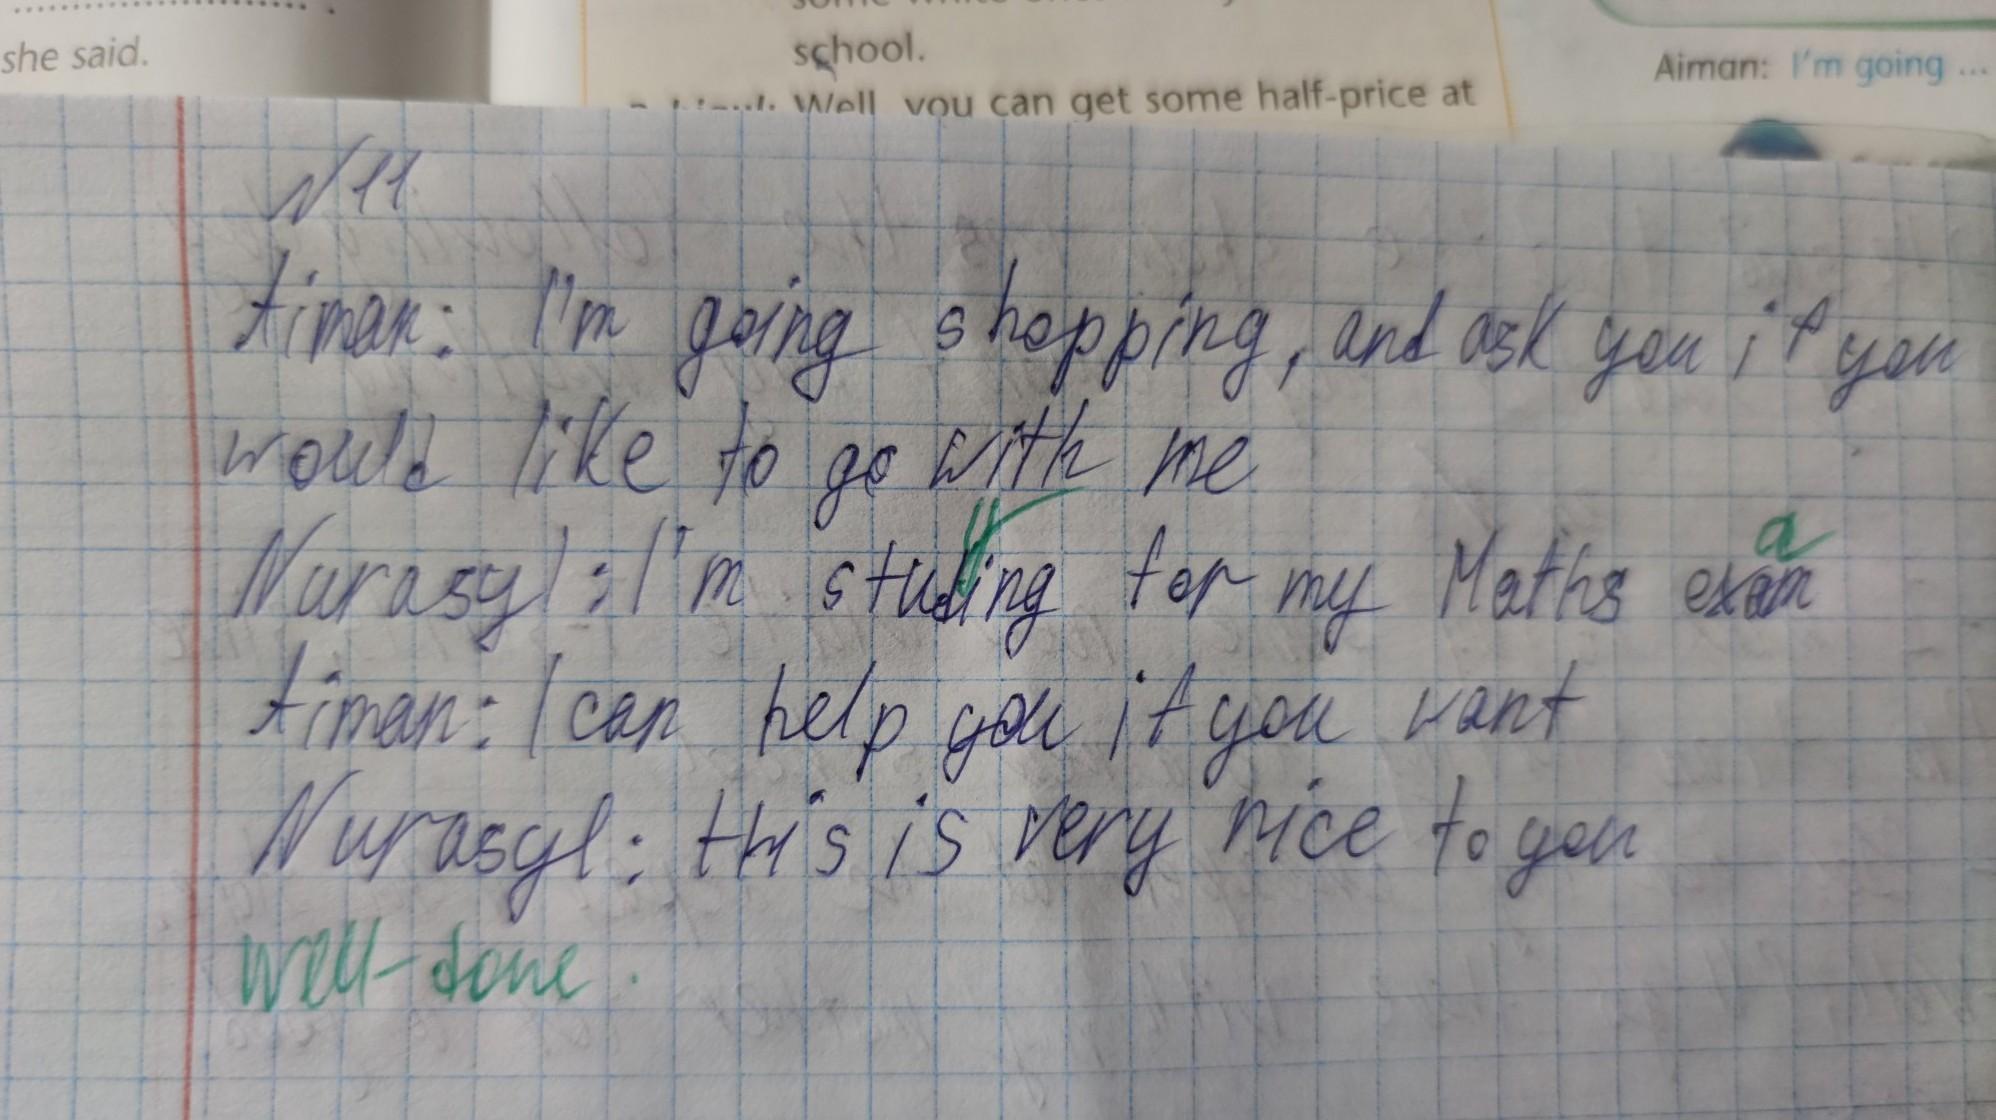 she said.
school.
Well, you can get some half-price at
Aiman: I'm going ...
N11
Aiman: I'm going shopping, and ask you if you
would like to go with me
y a
Nurasyl: I'm studing for my Maths exam
Aiman: I can help you if you want
Nurasyl: this is very nice to you
Well-done.